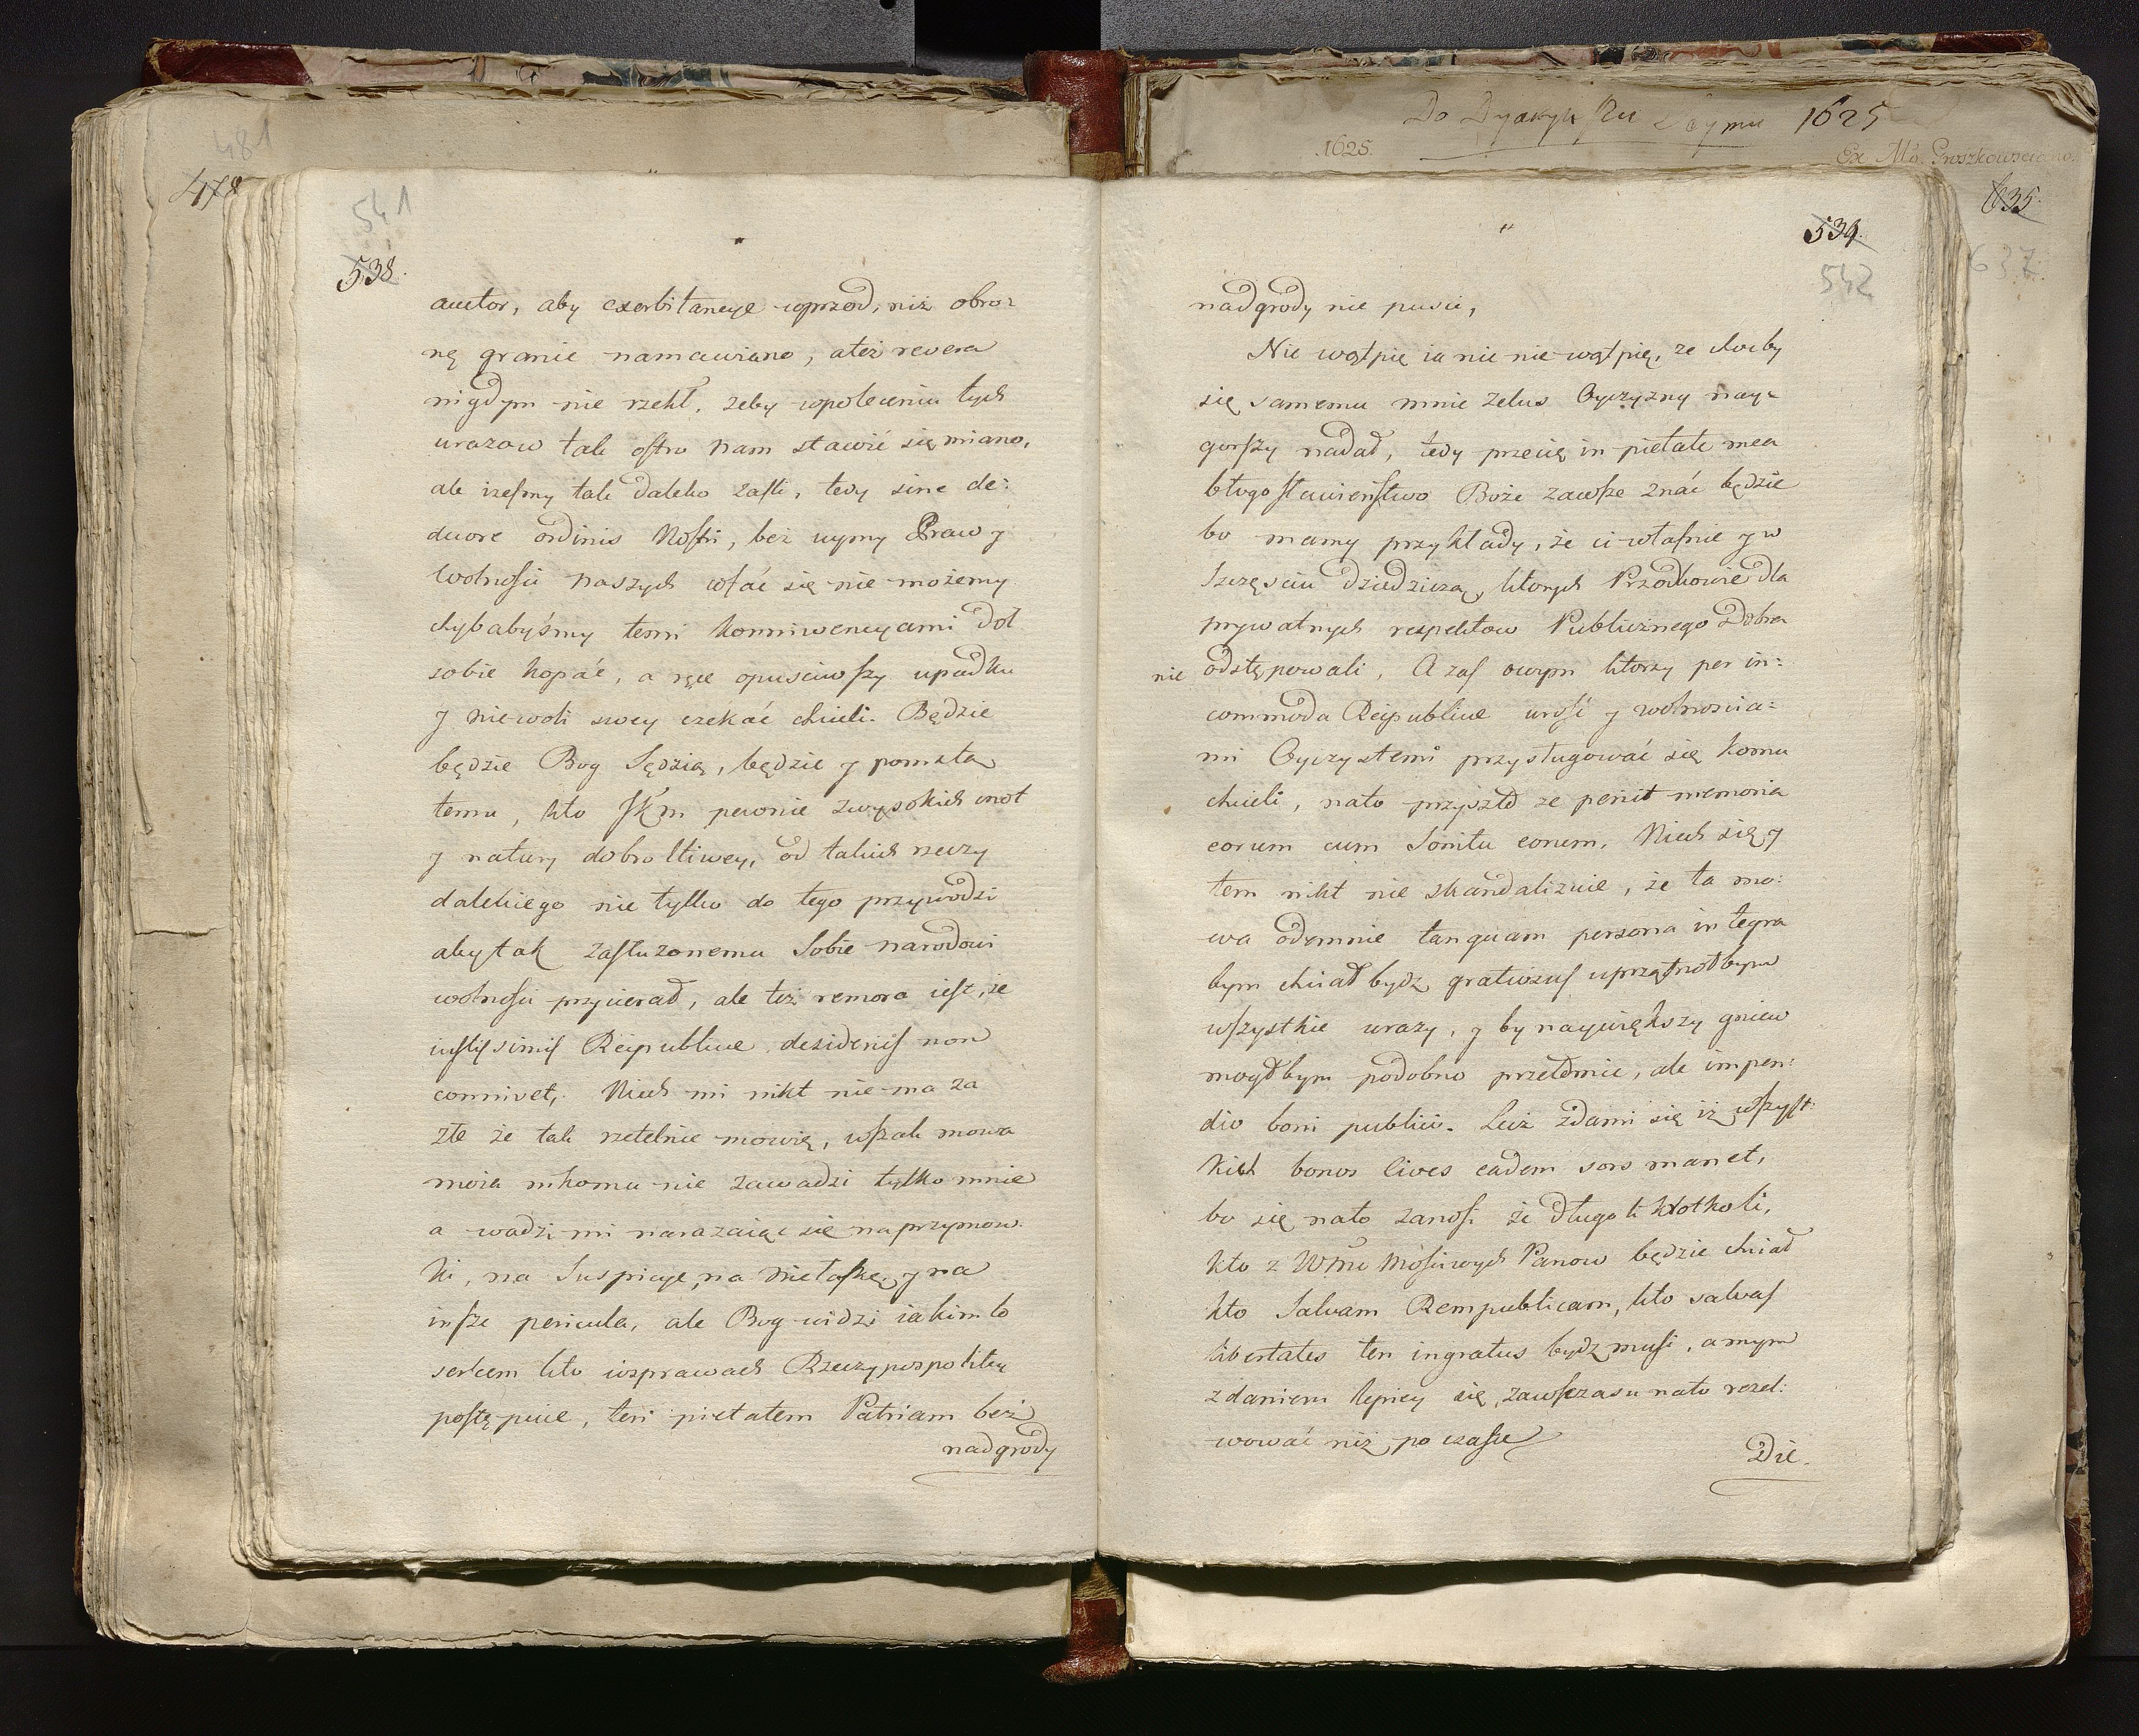 481
478
541
538.
autor, aby exorbitancye wprzod, niż obro=
nę granic namawiano, a też revera
nigdym nie rzekł, żeby wpoleceniu tych
urazow tak ostro nam stawić się miano,
ale iżesmy tak daleko zaszli, tedy sine de:
decore ordinis Nostri, bez uymy Praw y
Wolności naszych cofać się nie możemy
chybabyśmy temi konniwencyami doł
sobie kopać, a ręce opusciwszy upadku
y niewoli swey czekać chcieli. Będzie
będzie Bog Sędzią, będzie y pomsta
temu, kto JKm pewnie zwysokich cnot
y natury dobrotliwey, od takich rzeczy
dalekiego nie tylko do tego przywodzi
aby tak zasłużonemu Sobie narodowi
wolności przycierał, ale też remora iest, że
iustissimis Reipublicae desideriis non
connivet, Niech mi nikt nie ma za
złe że tak rzetelnie mowię, wszak mowa
moia nikomu nie zawadzi tylko mnie
a wadzi mi narażaiąc się na przymow
ki, na Suspicye, na niełaskę, y na
insze pericula, ale Bog widzi iakim to
sercem kto wsprawach Rzeczypospolitey
postępuie, ten pietatem Patriam bez
nadgrody
Do Dyaryu 1625
1625.
Ex Ms. Proszkowsciano.
635.
637.
539.
542
nadgrody nie pusci,
Nie wątpię ia nic nie wątpię, że choćby
się samemu mnie zelus Oyczyzny nay=
gorszy nadał, tedy przecię in pietate mea
błogosławieństwo Boże zawsze znać będzie
bo mamy przykłady, że ci własnie y w
Szczęsciu dziedziczą, ktorych Przodkowie dla
prywatnych respektow Publicznego Dobra
nie odstępowali, A zas owym ktorzy per in:
commoda Reipublicae urość y wolnościa=
mi Oyczystemi przysługować się komu
chcieli, nato przyszło że periit memoria
eorum cum Sonitu eorum, Niech się y
tem nikt nie skandalizuie, że ta mo:
wa odemnie tanquam persona integra
bym chciał bydz gratiosus uprzątnołbym
wszystkie urazy, y by naywiększy gniew
mogłbym podobno przełomic, ale impen:
dio boni publici. Lecz zdami się iż wszyst:
kich bonos Cives eadem sors manet,
bo się nato zanosi że długo li krotkoli,
kto z Wm Mościwych Panow będzie chciał
kto Salvam Rempublicam, kto salvas
libertates ten ingratus bydz musi, a mym
zdaniem lepiey się zawszasu nato rezol:
wować niż po czasie
Dic.